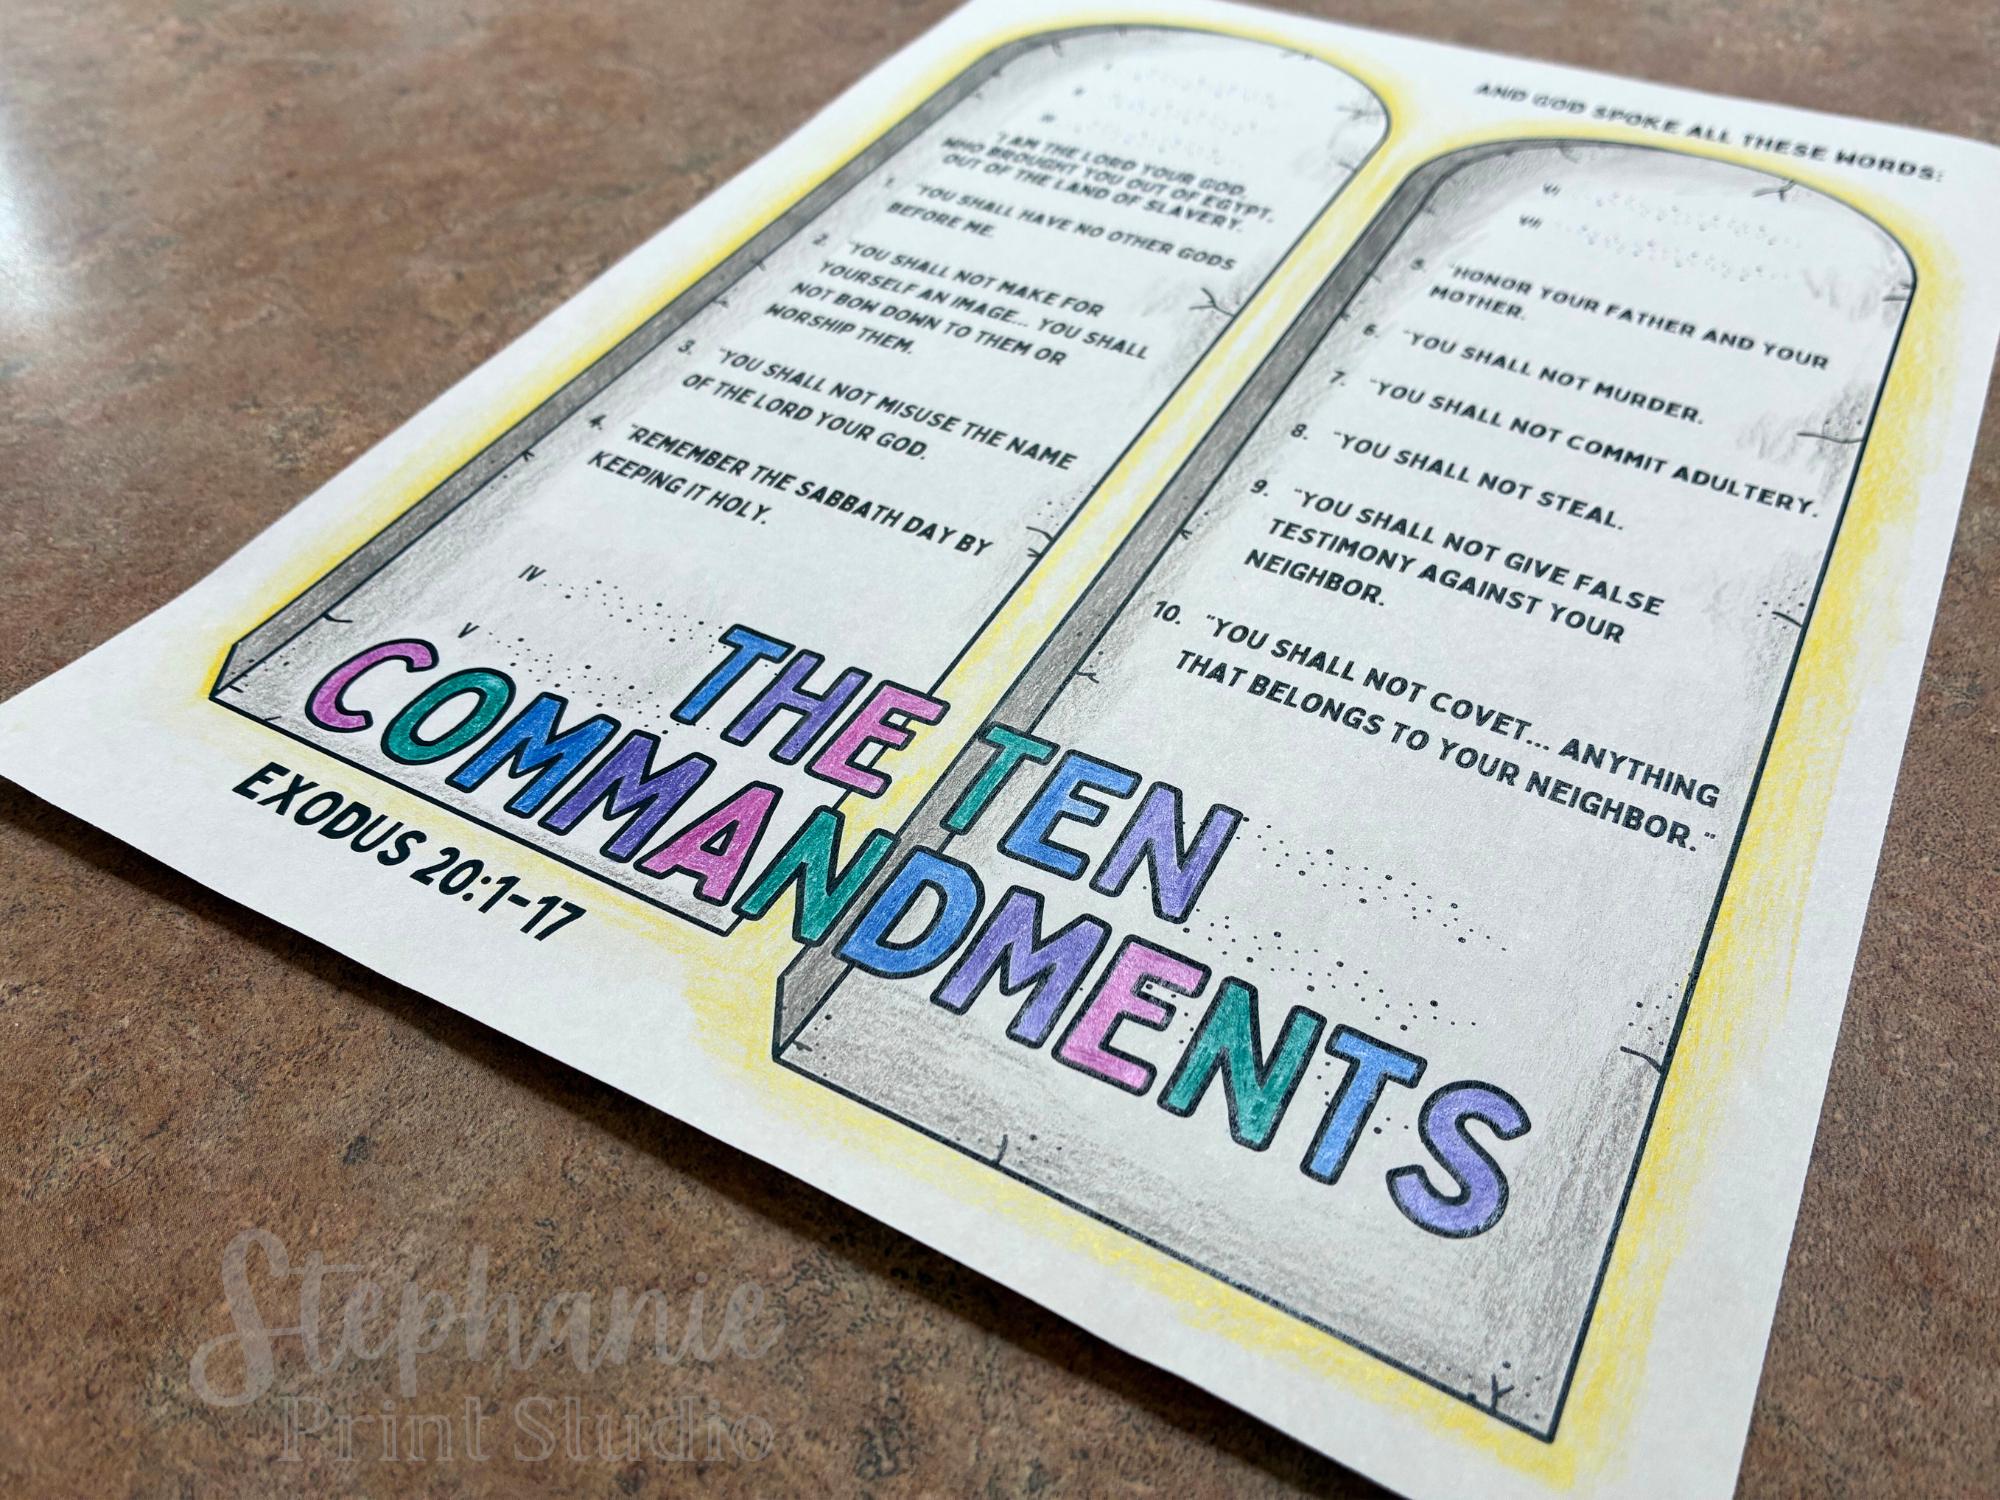 AND GOD SPOKE ALL THESE WORDS:
"I AM THE LORD YOUR GOD,
WHO BROUGHT YOU OUT OF EGYPT,
OUT OF THE LAND OF SLAVERY.
1. "YOU SHALL HAVE NO OTHER GODS
BEFORE ME.
2. "YOU SHALL NOT MAKE FOR
YOURSELF AN IMAGE... YOU SHALL
NOT BOW DOWN TO THEM OR
WORSHIP THEM.
3. "YOU SHALL NOT MISUSE THE NAME
OF THE LORD YOUR GOD.
4. "REMEMBER THE SABBATH DAY BY
KEEPING IT HOLY.
IV
V
VI
VII
5. "HONOR YOUR FATHER AND YOUR
MOTHER.
6. "YOU SHALL NOT MURDER.
7. "YOU SHALL NOT COMMIT ADULTERY.
8. "YOU SHALL NOT STEAL.
9. "YOU SHALL NOT GIVE FALSE
TESTIMONY AGAINST YOUR
NEIGHBOR.
10. "YOU SHALL NOT COVET... ANYTHING
THAT BELONGS TO YOUR NEIGHBOR."
THE TEN
COMMANDMENTS
EXODUS 20:1-17
Stephanie
Print Studio